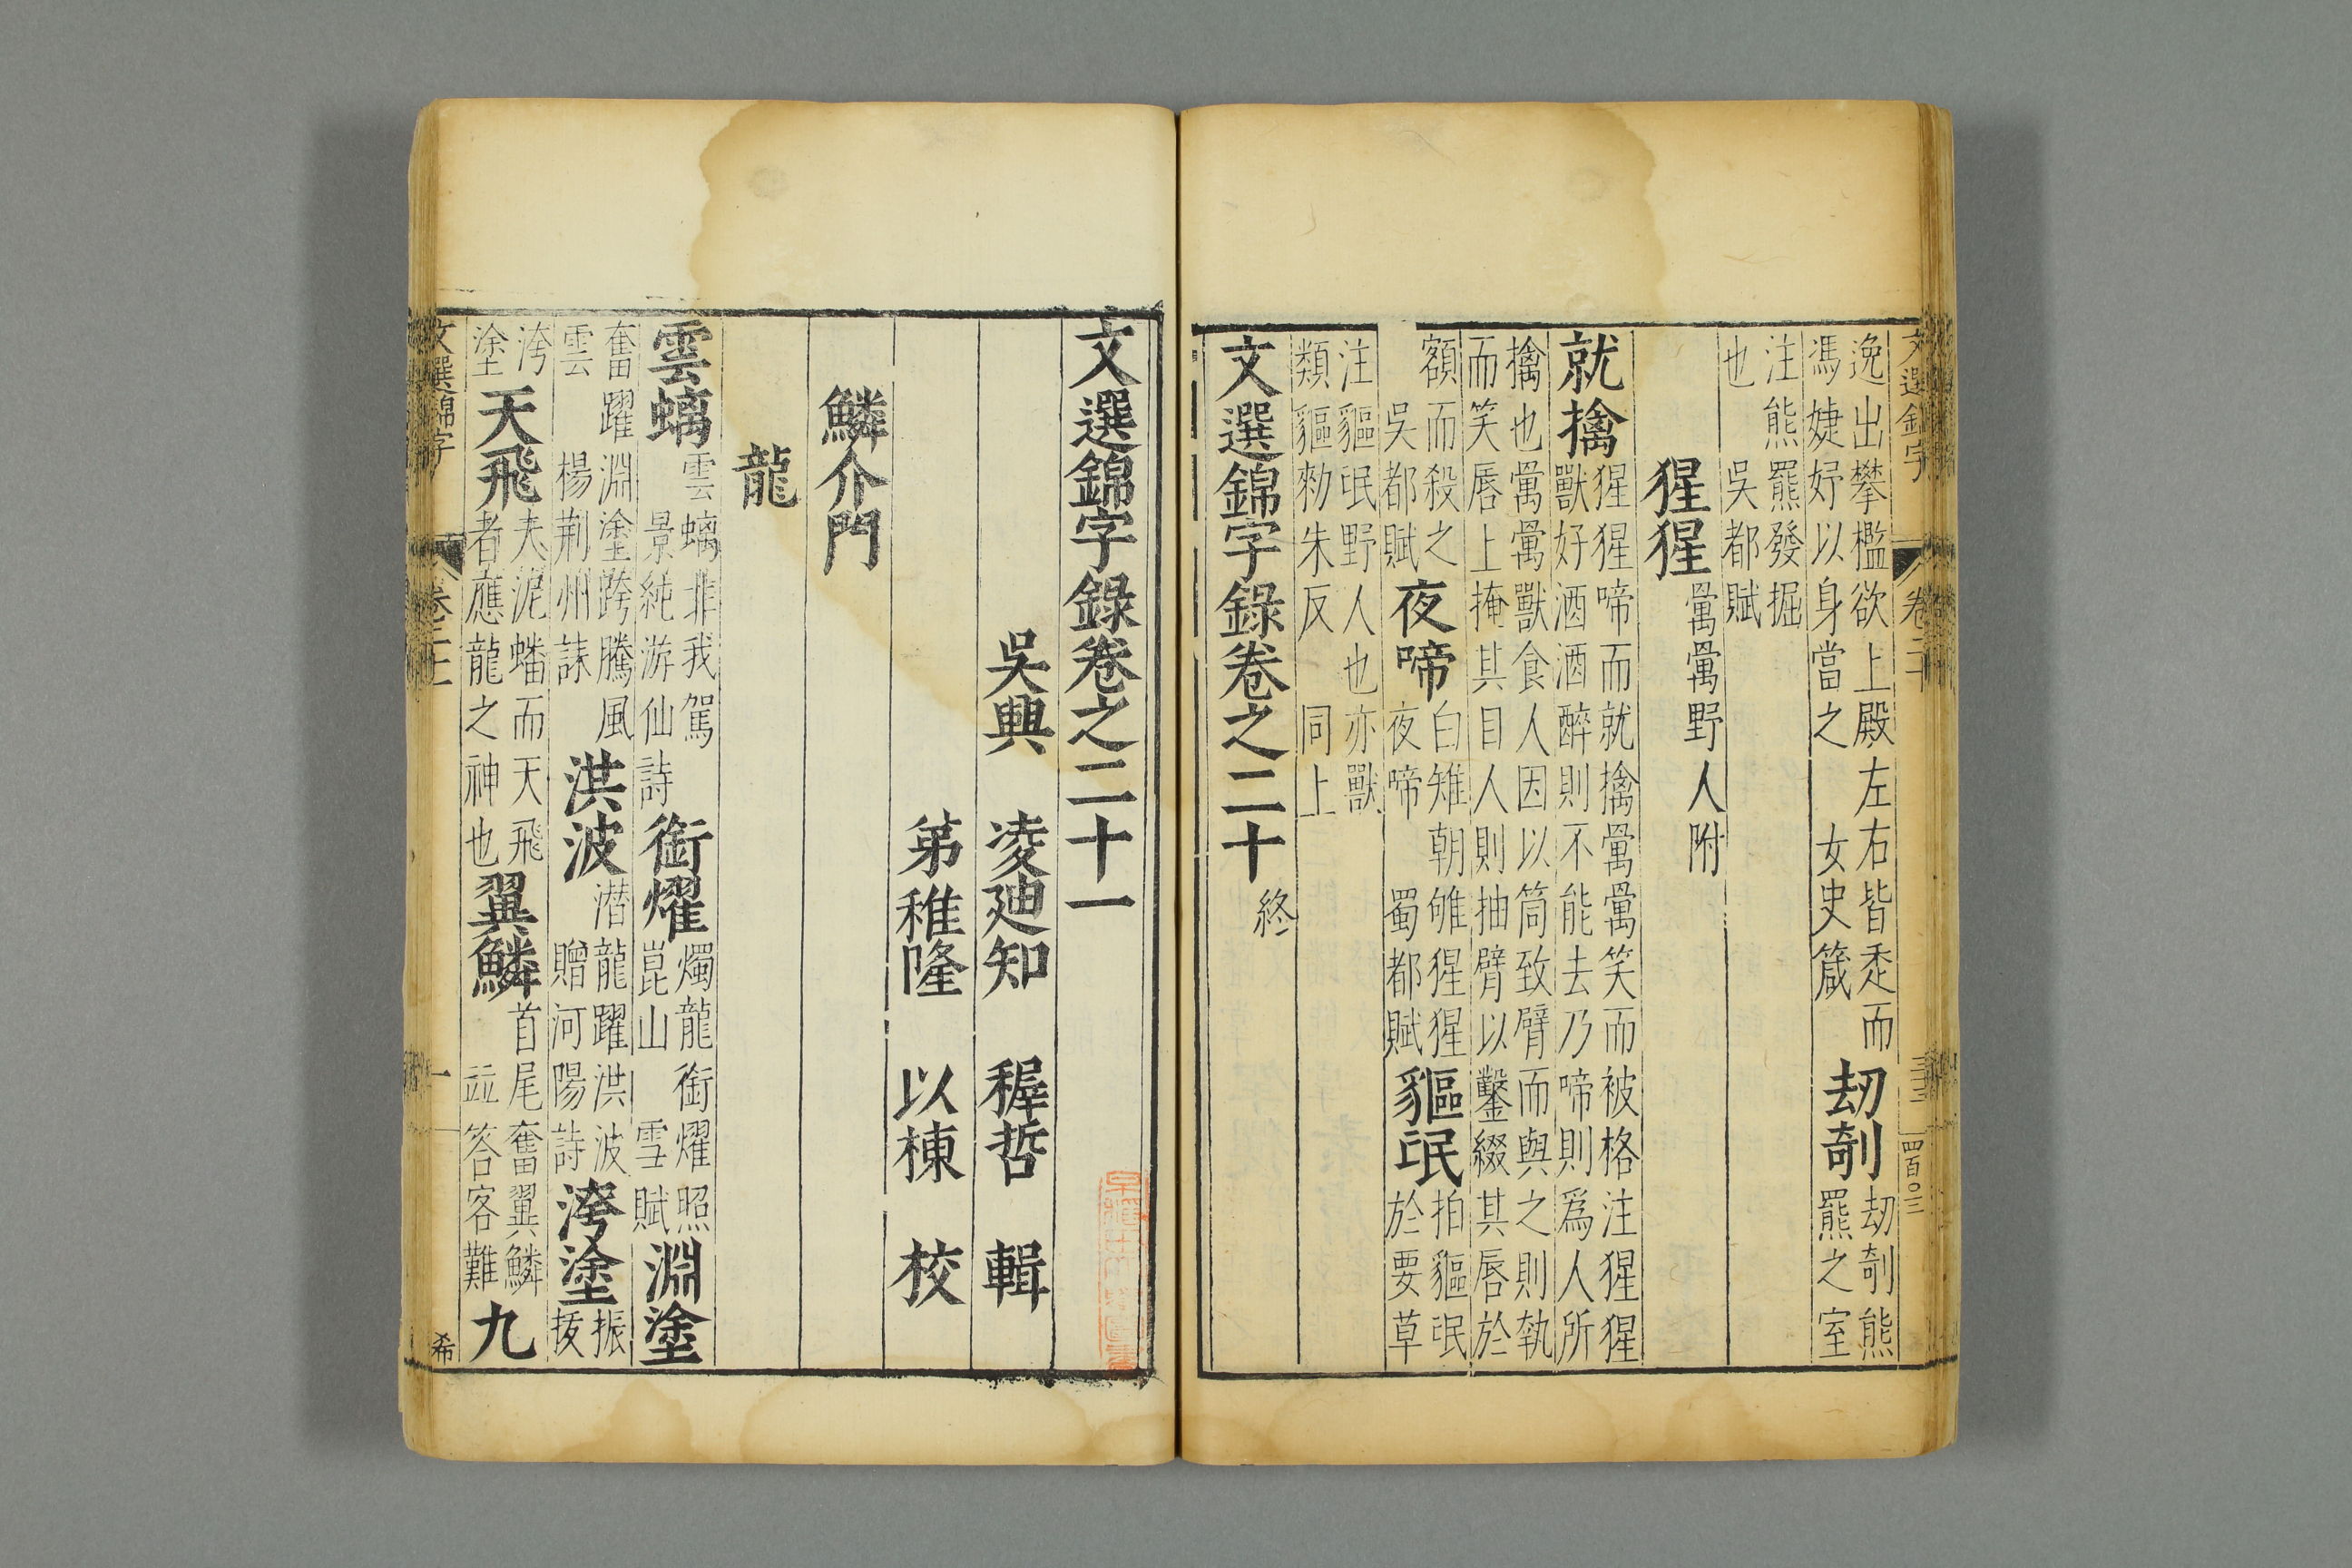 逸出攀檻欲上殿左右皆走而
馮婕妤以身當之　女史箴
劫剞
劫剞熊
羆之室
注熊羆發掘
也　吳都賦
猩猩
𤟤𤟤野人附
就擒
猩猩啼而就擒𤟤𤟤笑而被格注猩猩
獸好酒酒醉則不能去乃啼則爲人所
擒也𤟤𤟤獸食人因以筒致臂而與之則執
而笑唇上掩其目人則抽臂以鑿綴其唇於
額而殺之
吳都賦
夜啼
白雉朝雊猩猩
夜啼　蜀都賦
貙氓
拍貙氓
於要草
注貙氓野人也亦獸
類貙勑朱反　同上
文選錦字錄卷之二十
終
文選錦字
卷二十
四百〇三
文選錦字錄卷之二十一
吳興　凌廸知　稺哲　輯
弟稚隆　以棟　校
鱗介門
龍
雲螭
雲螭非我駕
景純游仙詩
銜燿
燭龍銜燿照
崑山　雪賦
淵塗
奮躍淵塗跨騰風
雲　楊荆州誄
洪波
潛龍躍洪波
贈河陽詩
洿塗
振
拔
洿
塗
天飛
夫泥蟠而天飛
者應龍之神也
翼鱗
首尾奮翼鱗
並　答客難
九
文選錦字
卷二十一
一
希